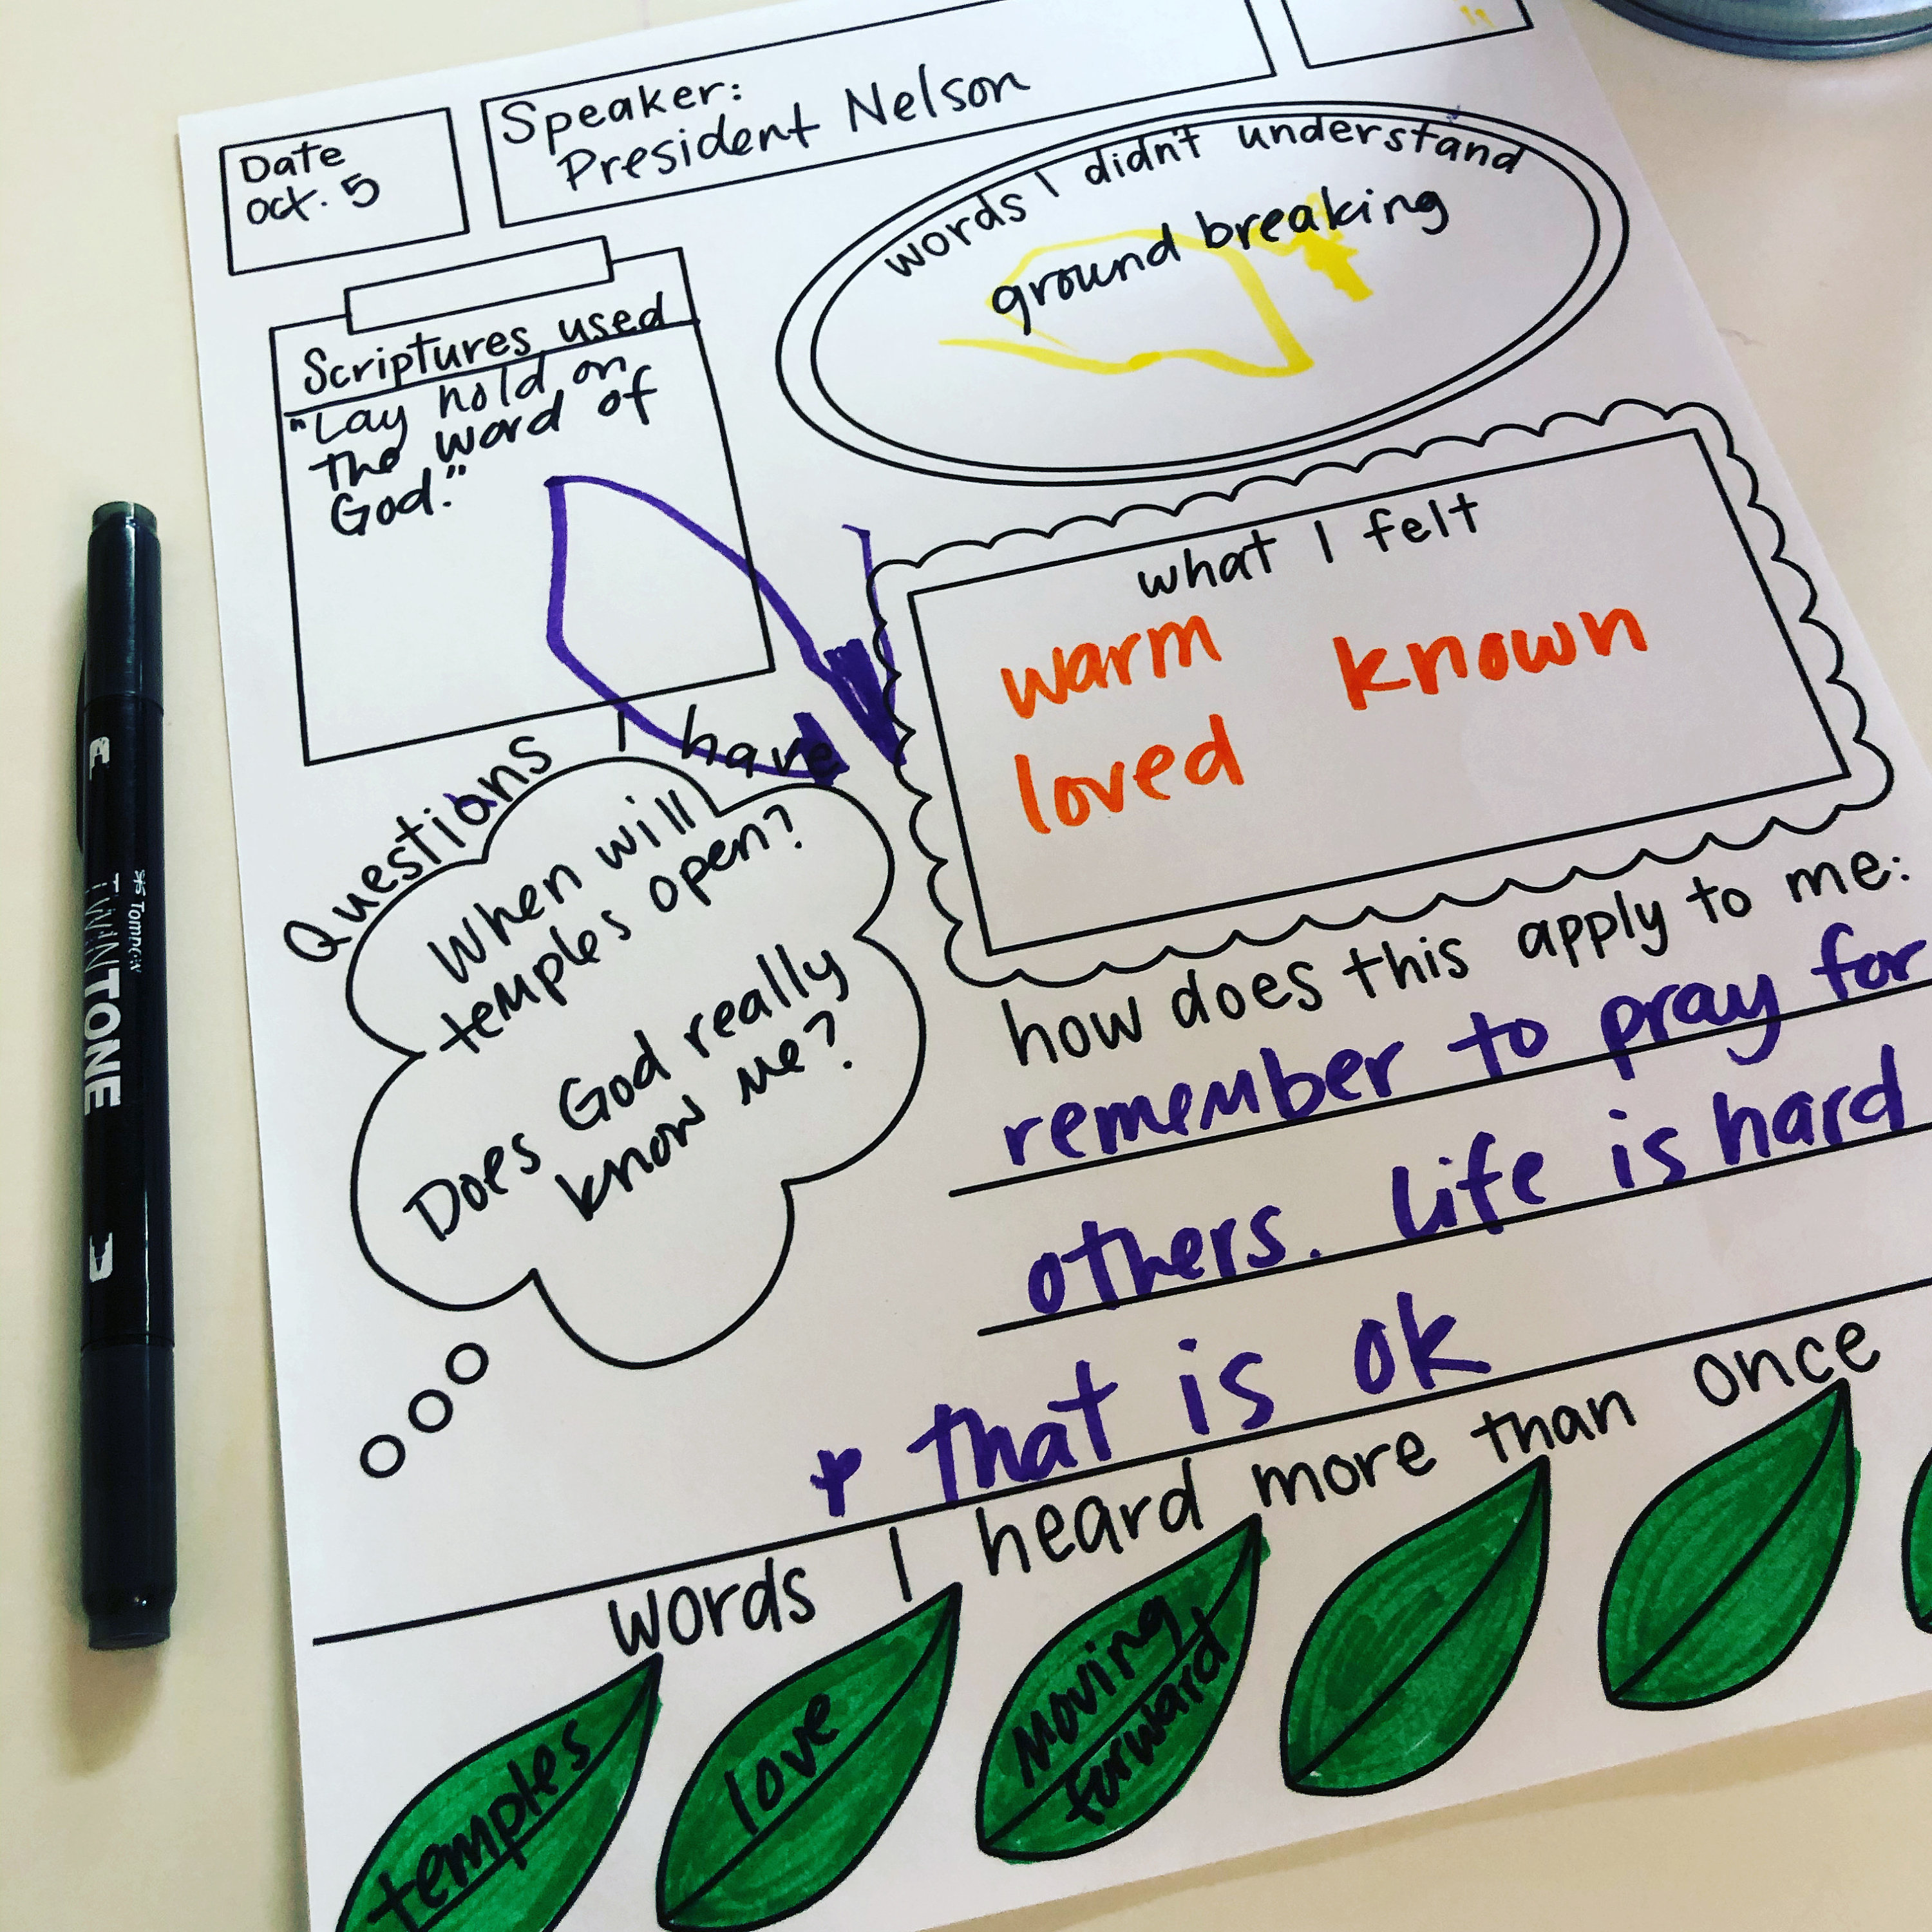 Date
oct. 5
Speaker:
President Nelson
words I didn't understand
ground breaking
Scriptures used
"Lay hold on
the word of
God."
what I felt
warm known
loved
Questions I have
When will
temples open?
Does God really
know me?
how does this apply to me:
remember to pray for
others. Life is hard
+ that is ok
words I heard more than once
temples
love
moving
forward
Tombow
TWINTONE